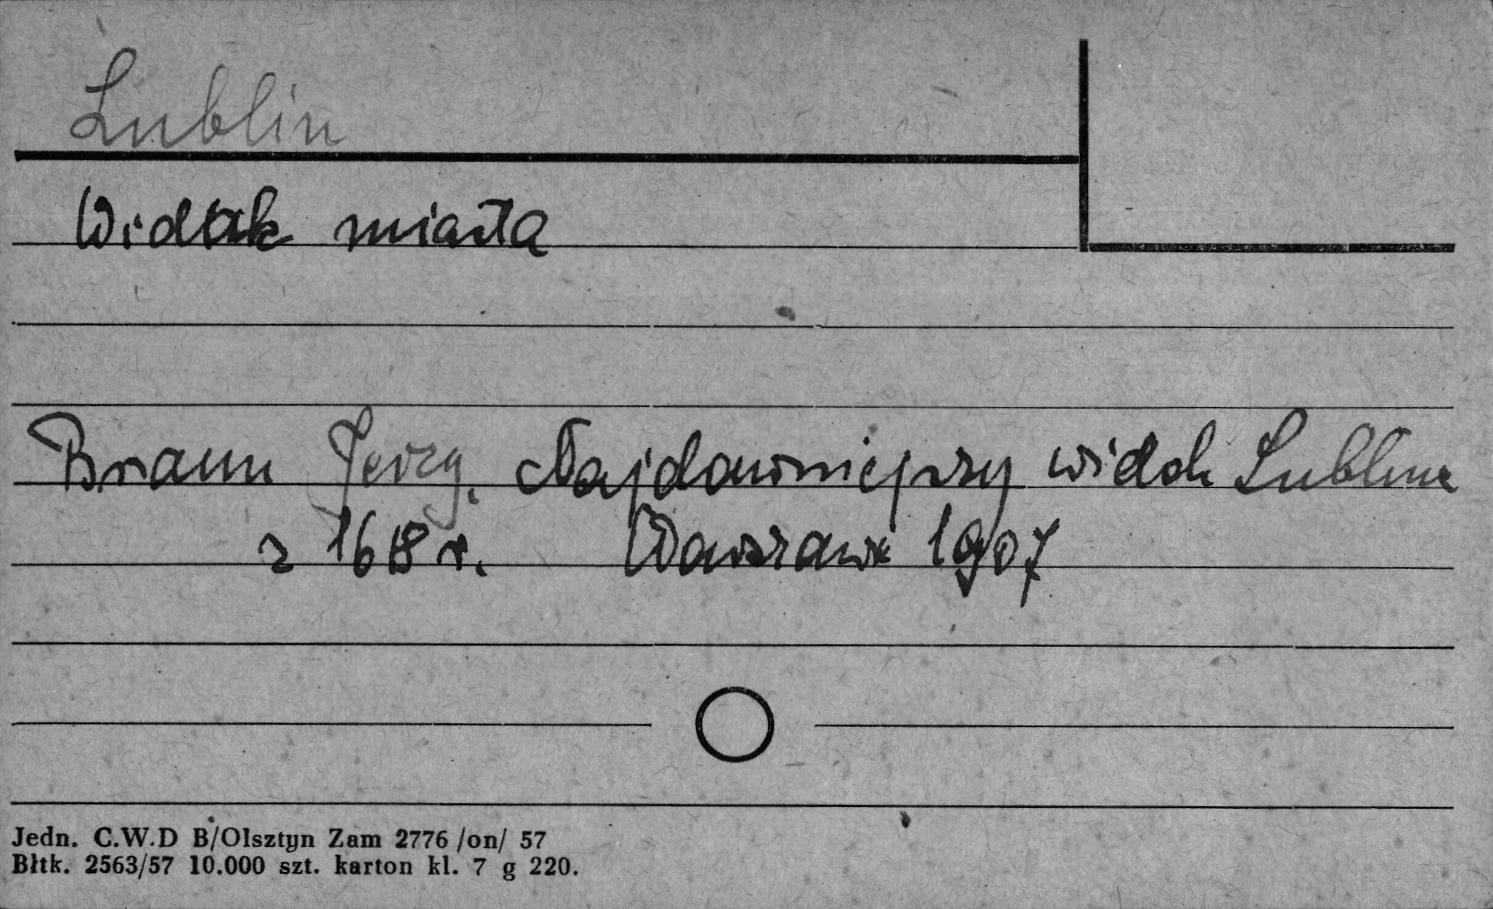 Lublin
Widok miasta
Braun Jerzy. Najdawniejszy widok Lublina
z 1618 r. Warszawa 1907
Jedn. C.W.D B/Olsztyn Zam 2776 /on/ 57
Błtk. 2563/57 10.000 szt. karton kl. 7 g 220.